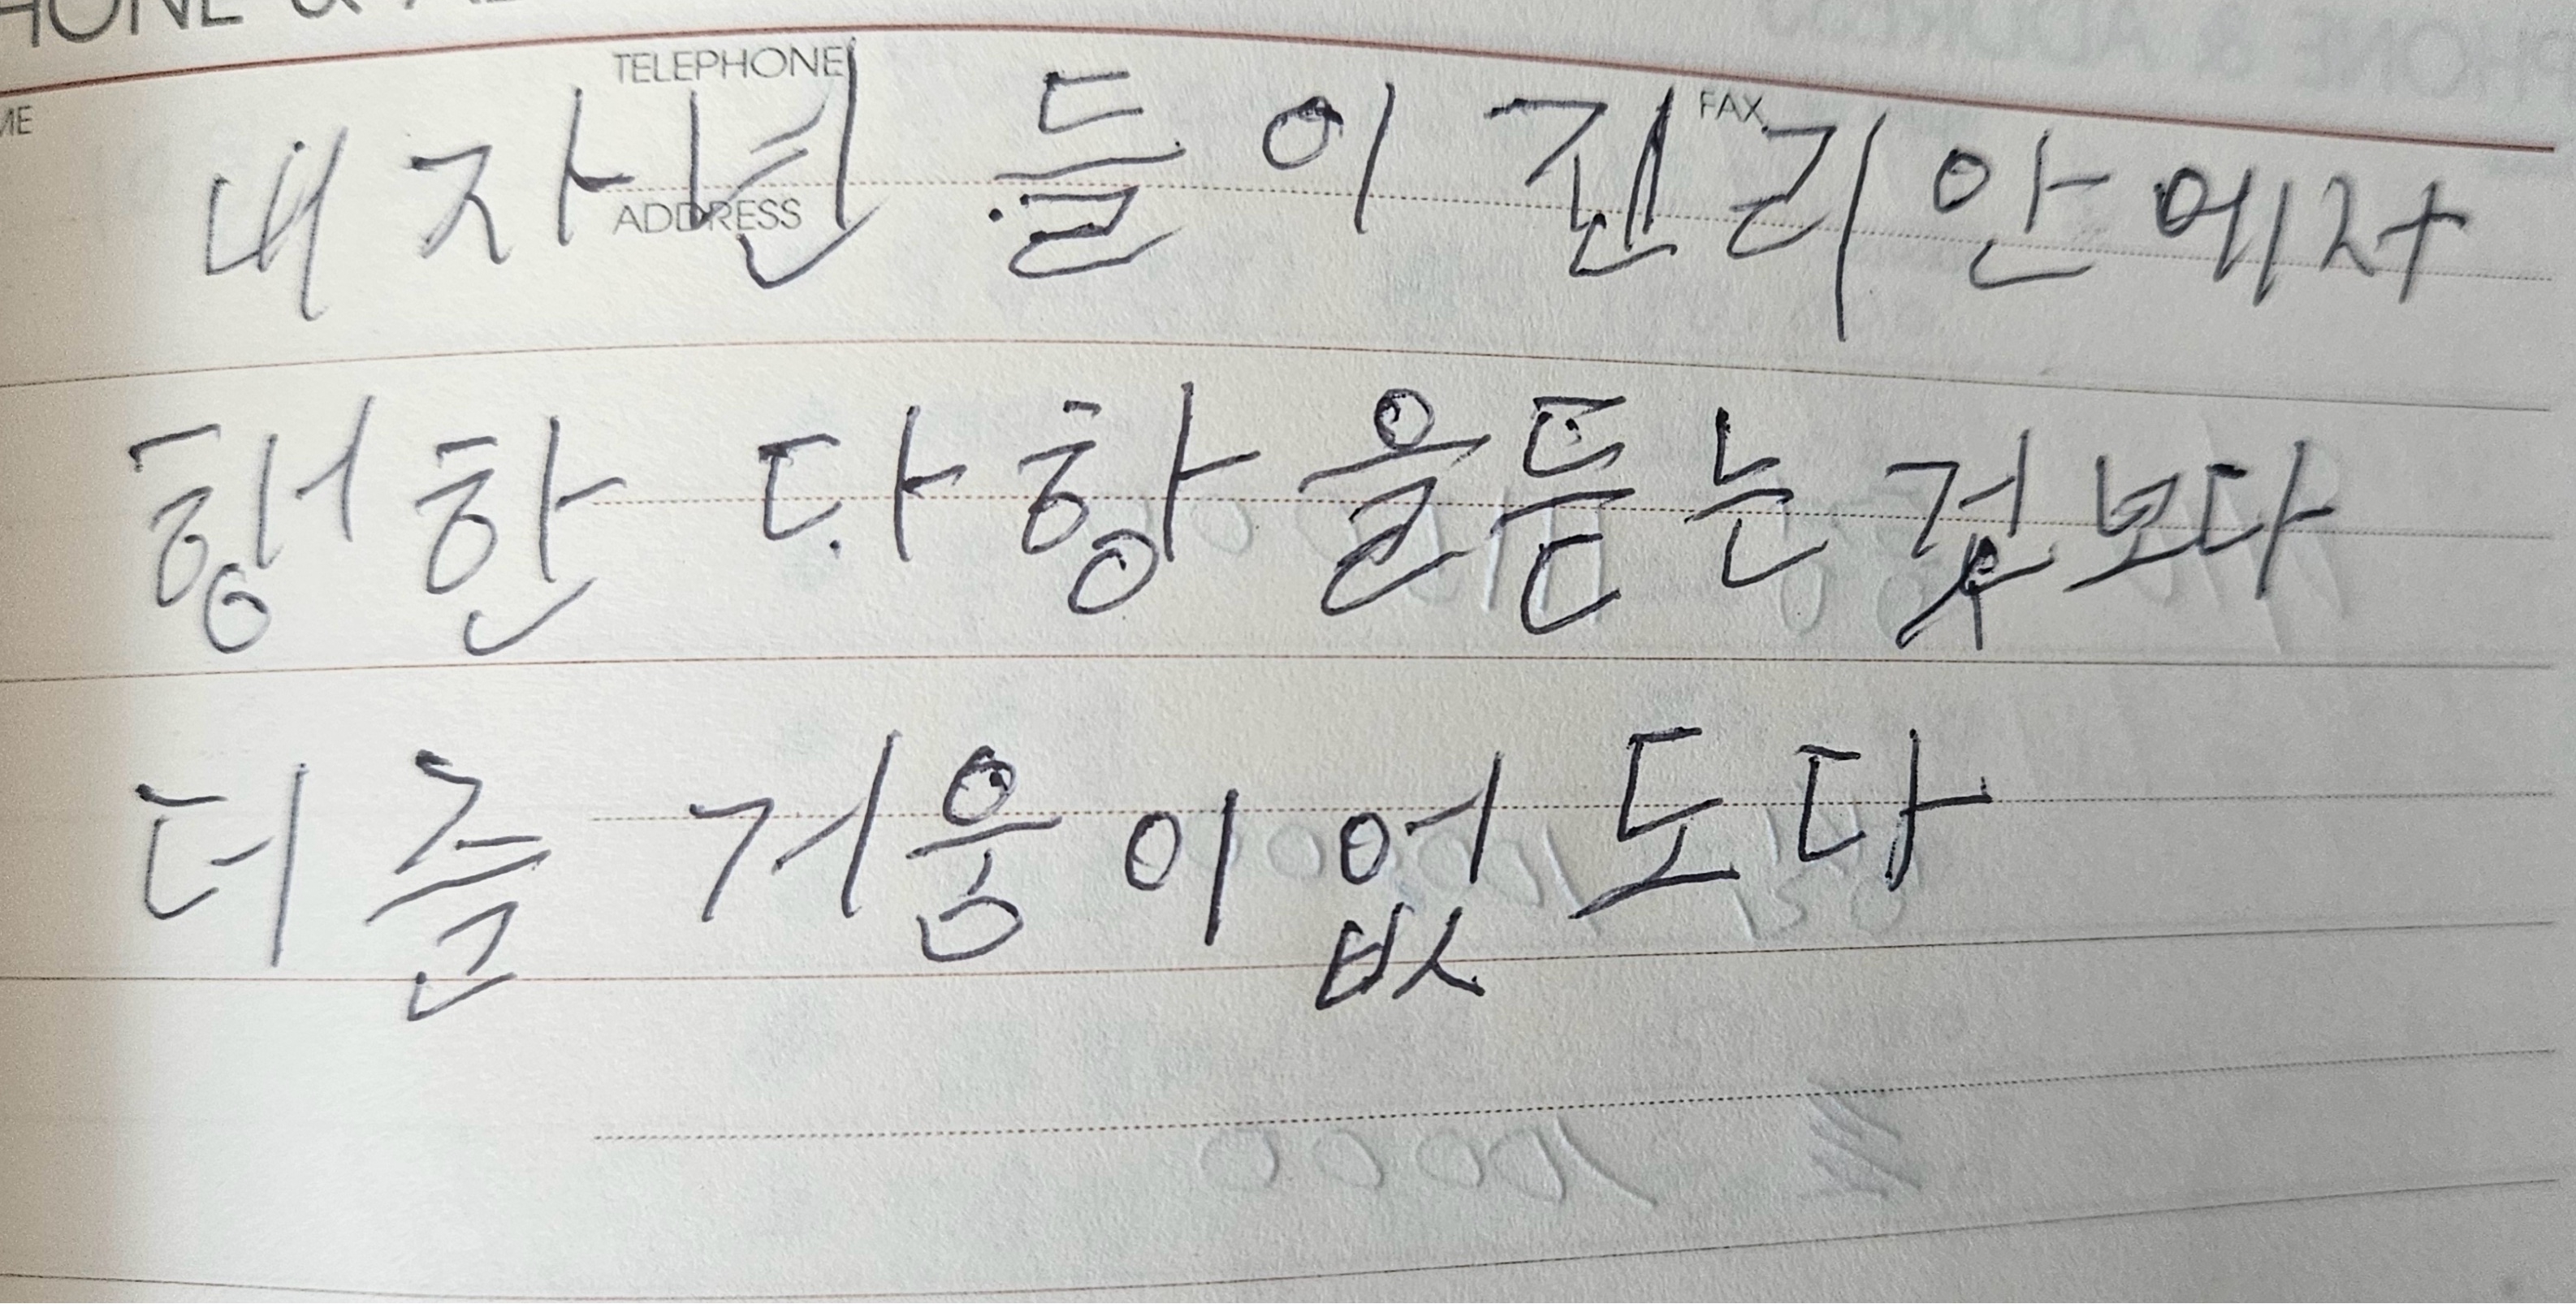 HONE &
TELEPHONE
FAX
ADDRESS
내 자년 들이 진리 안에사
헹한 다 항을 듣는 것보다
더 즐 거움이 없도다
10000